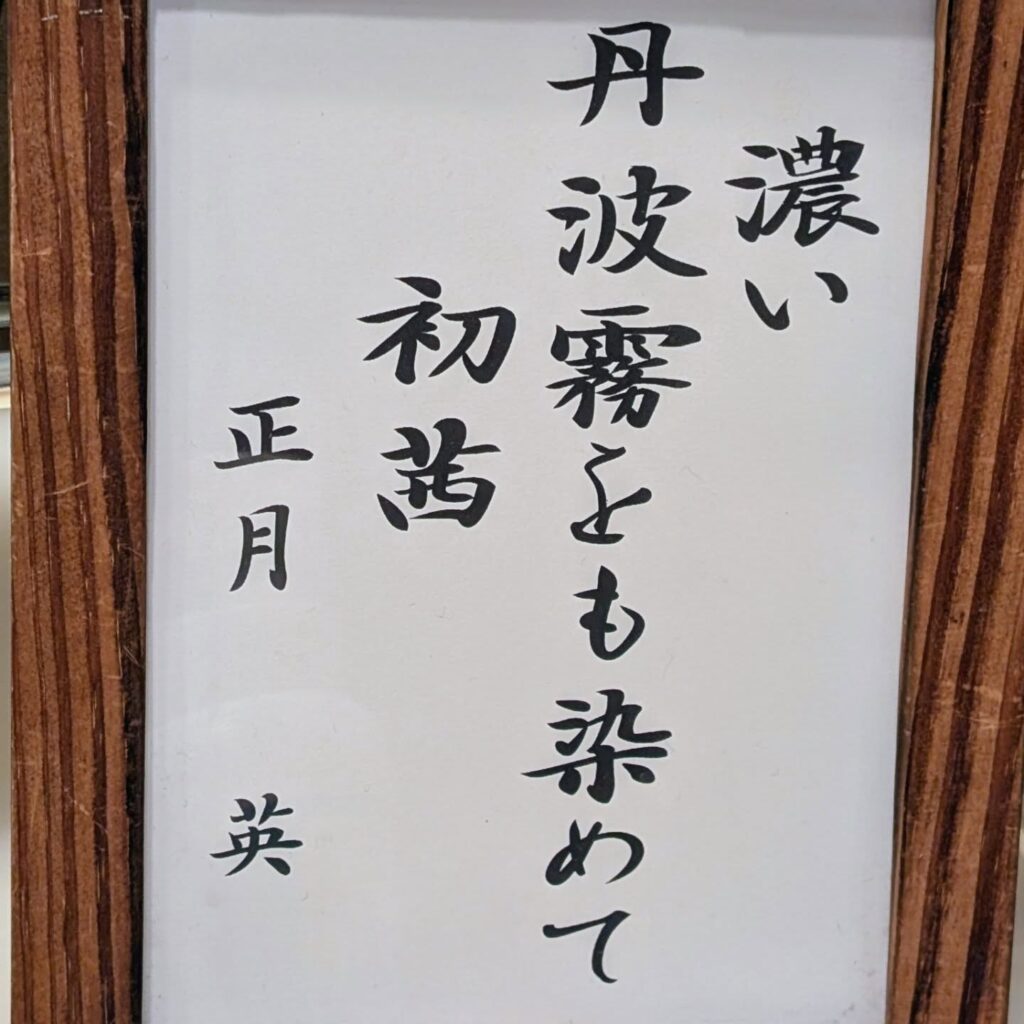 濃い
丹波霧とも染めて
初茜
正月 英